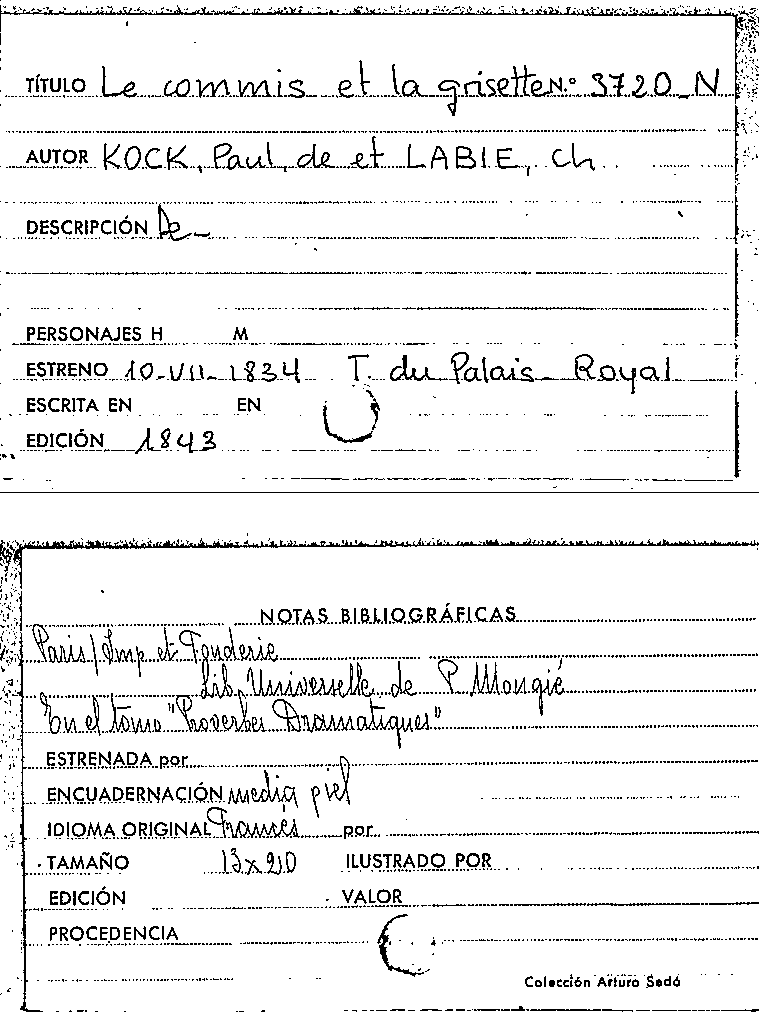 TÍTULO Le commis et la grisette N.º 3720-N
AUTOR KOCK, Paul, de et LABIE, Ch.
DESCRIPCIÓN
PERSONAJES H M
ESTRENO 10-VII-1834 T. du Palais-Royal
ESCRITA EN EN
EDICIÓN 1843
NOTAS BIBLIOGRÁFICAS
Paris/Imp et Fonderie
Lib, Universelle de P Mongié
En el tomo "Proverbes Dramatiques"
ESTRENADA por
ENCUADERNACIÓN media piel
IDIOMA ORIGINAL Francés por
TAMAÑO 13 x 210 ILUSTRADO POR
EDICIÓN VALOR
PROCEDENCIA
Colección Arturo Sedó